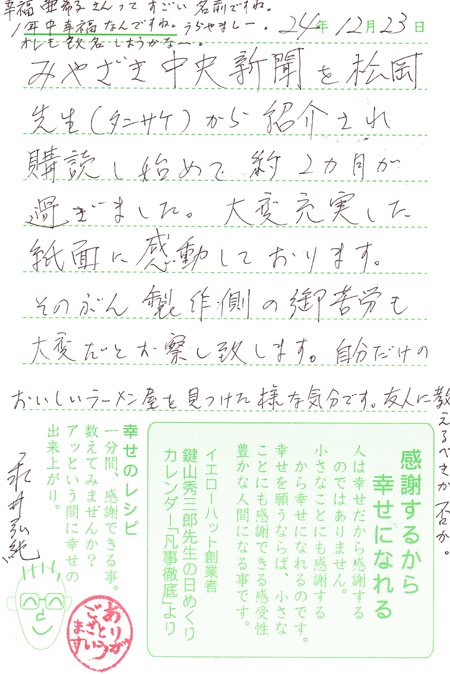 幸福 亜希子さんって すごい 名前ですね。
1年中幸福なんですね。うらやましー。
オレも改名しようかなー。
24年12月23日
みやざき中央新聞を松岡
先生(タニサケ)から紹介され
購読し始めて約2カ月が
過ぎました。大変充実した
紙面に感動しております。
そのぶん製作側の御苦労も
大変だとお察し致します。自分だけの
おいしいラーメン屋を見つけた様な気分です。友人に教
えるべきか否か。
感謝するから
幸せになれる
人は幸せだから感謝する
のではありません。
小さなことにも感謝する
から幸せになれるのです。
幸せを願うならば、小さな
ことにも感謝できる感受性
豊かな人間になる事です。
イエローハット創業者
鍵山秀三郎先生の日めくり
カレンダー「凡事徹底」より
幸せのレシピ
一分間、感謝できる事。
数えてみませんか?
アッという間に幸せの
出来上がり。
永井弘純
ありが
とう
ござい
ます